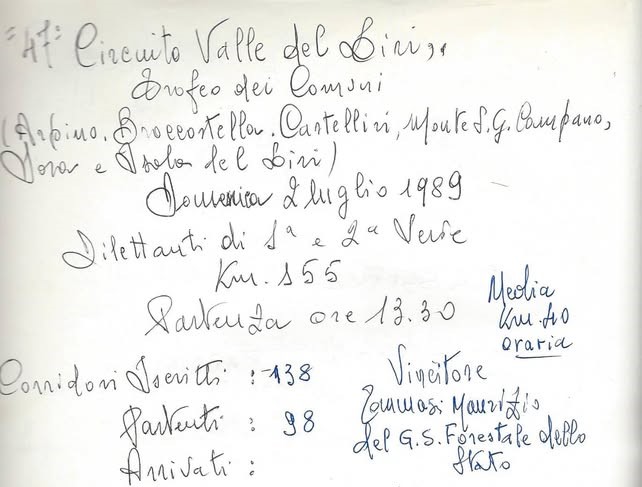 "47° Circuito Valle del Liri,,
Trofeo dei Comuni
(Arpino, Broccostella, Castelliri, Monte S.G. Campano,
Sora e Isola del Liri)
Domenica 2 luglio 1989
Dilettanti di 1ª e 2ª Serie
Km. 155
Partenza ore 13.30
Media
Km. 40
oraria
Corridori Iscritti : 138
Partenti : 98
Arrivati :
Vincitore
Tommasi Maurizio
del G.S. Forestale dello
Stato